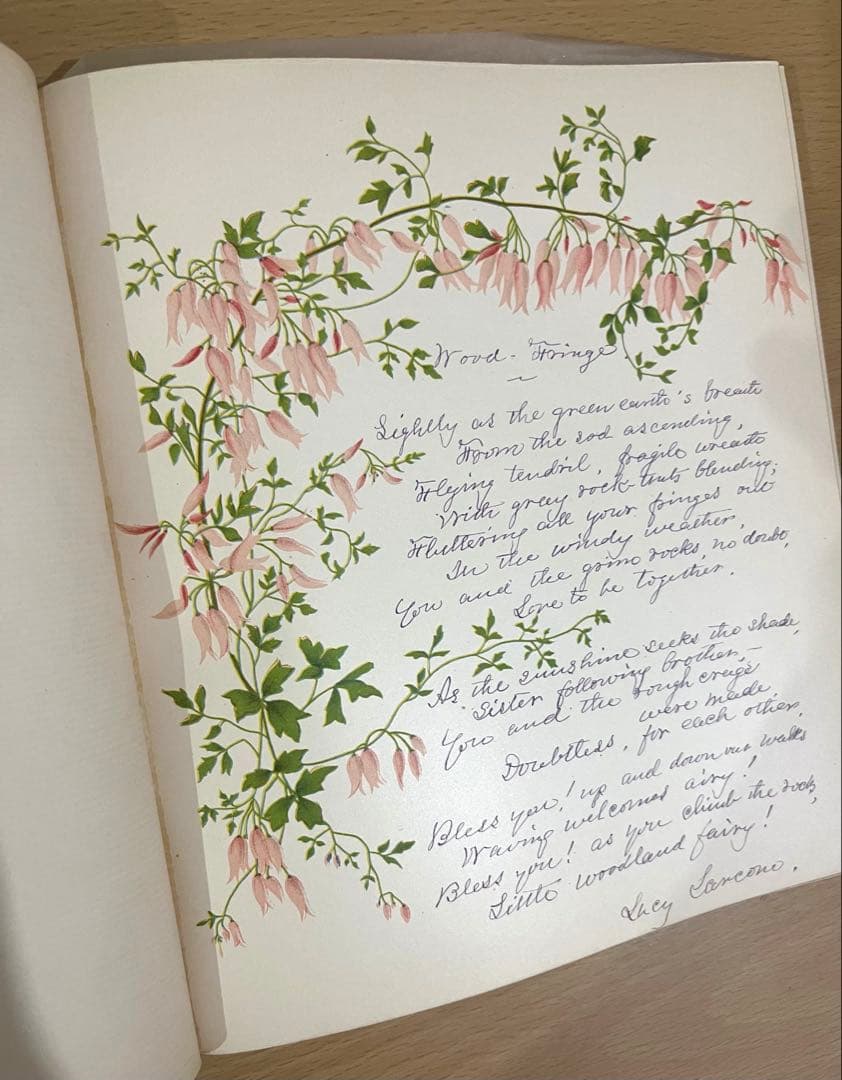 Wood-Fringe
Lightly as the green earth's breath
From the sod ascending,
Flying tendril, fragile wreath
With gray rock-tints blending;
Fluttering all your fringes out
In the windy weather,
You and the grim rocks, no doubt,
Love to be together.
As the sunshine seeks the shade,
Sister following brother, —
You and the rough crags
were made
Doubtless, for each other.
Bless you! up and down our walks
Waving welcomes airy!
Bless you! as you climb the rocks,
Little woodland fairy!
Lucy Larcom.